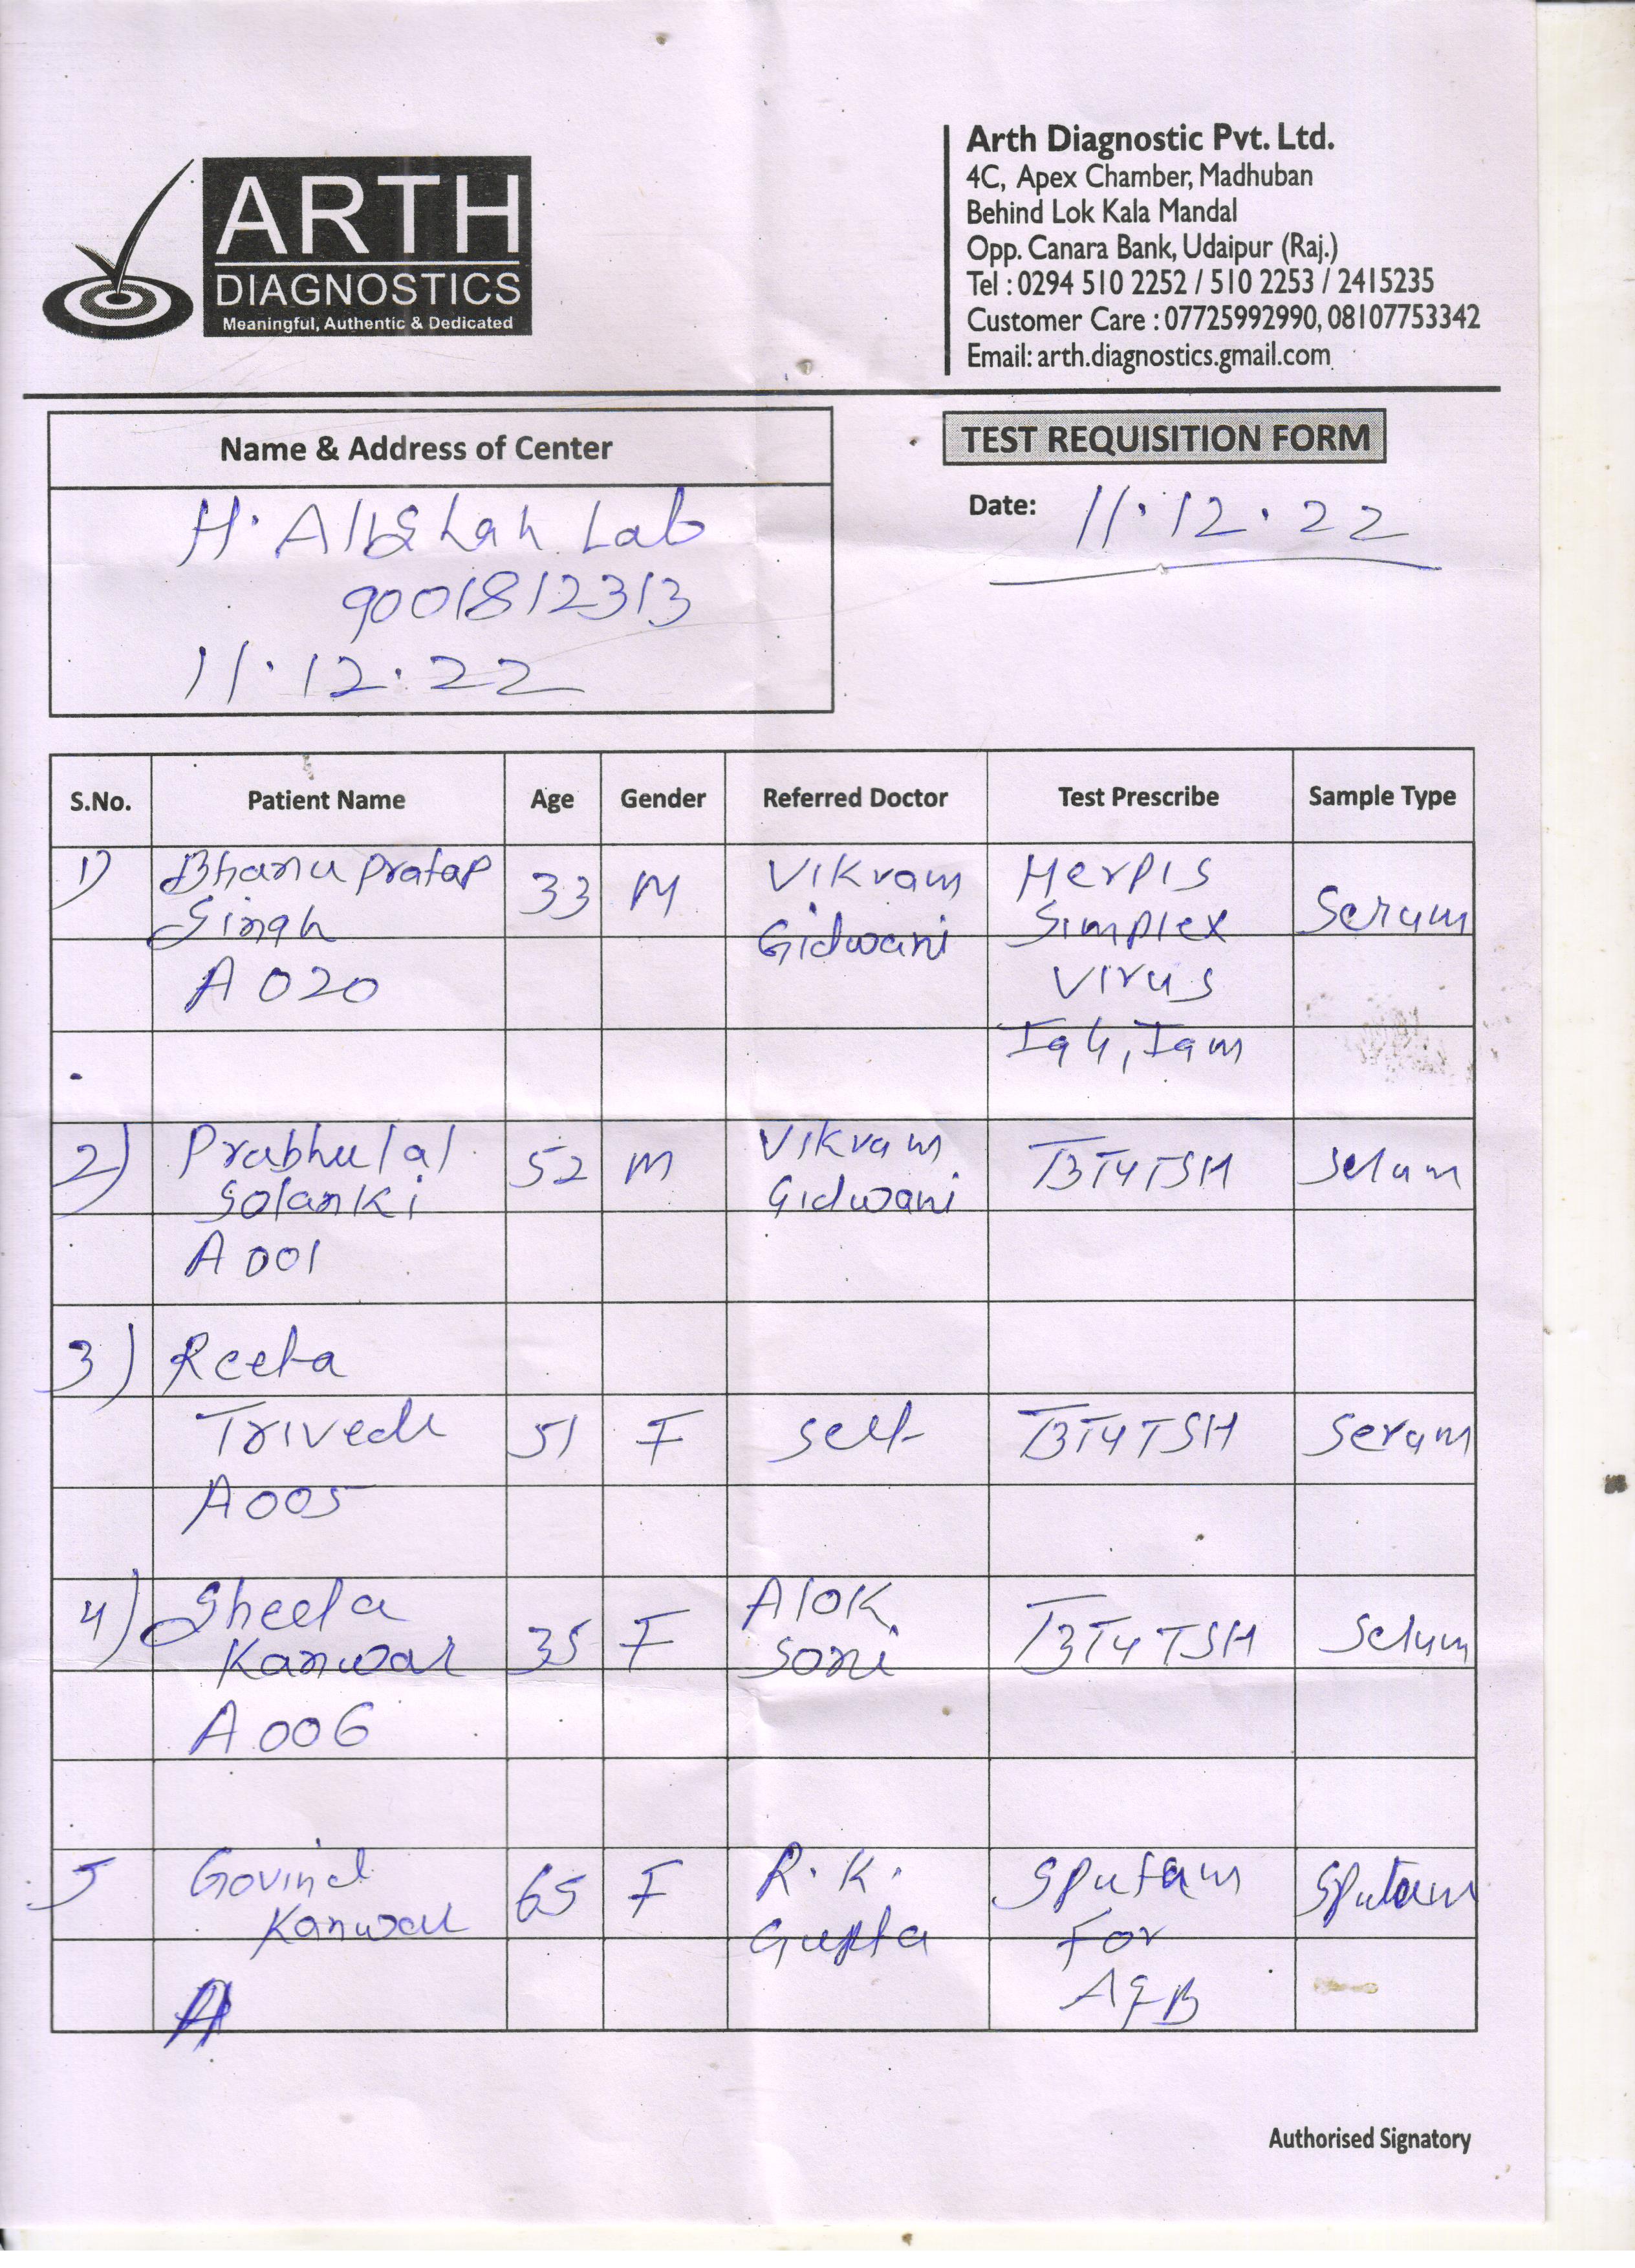 ARTH
DIAGNOSTICS
Meaningful, Authentic & Dedicated
Arth Diagnostic Pvt. Ltd.
4C, Apex Chamber, Madhuban
Behind Lok Kala Mandal
Opp. Canara Bank, Udaipur (Raj.)
Tel : 0294 510 2252 / 510 2253 / 2415235
Customer Care : 07725992990, 08107753342
Email: arth.diagnostics.gmail.com
Name & Address of Center
TEST REQUISITION FORM
Date: 11.12.22
H. Lab
9001812313
11.12.22
S.No. Patient Name Age Gender Referred Doctor Test Prescribe Sample Type
1) Bhanu Pratap 33 M Vikram Herpis Serum
Singh Gidwani Simplex
A 020 Virus
IgG, Igm
2) Prabhulal 52 M Vikram T3T4TSH Serum
Solanki Gidwani
A 001
3) Reeta
Trivedi 51 F self T3T4TSH Serum
A005
4) Sheela 35 F Alok T3T4TSH Serum
Kanwar Soni
A 006
5 Govind 65 F R. K. Sputam Sputam
Kanwar Gupta For
A AFB
Authorised Signatory